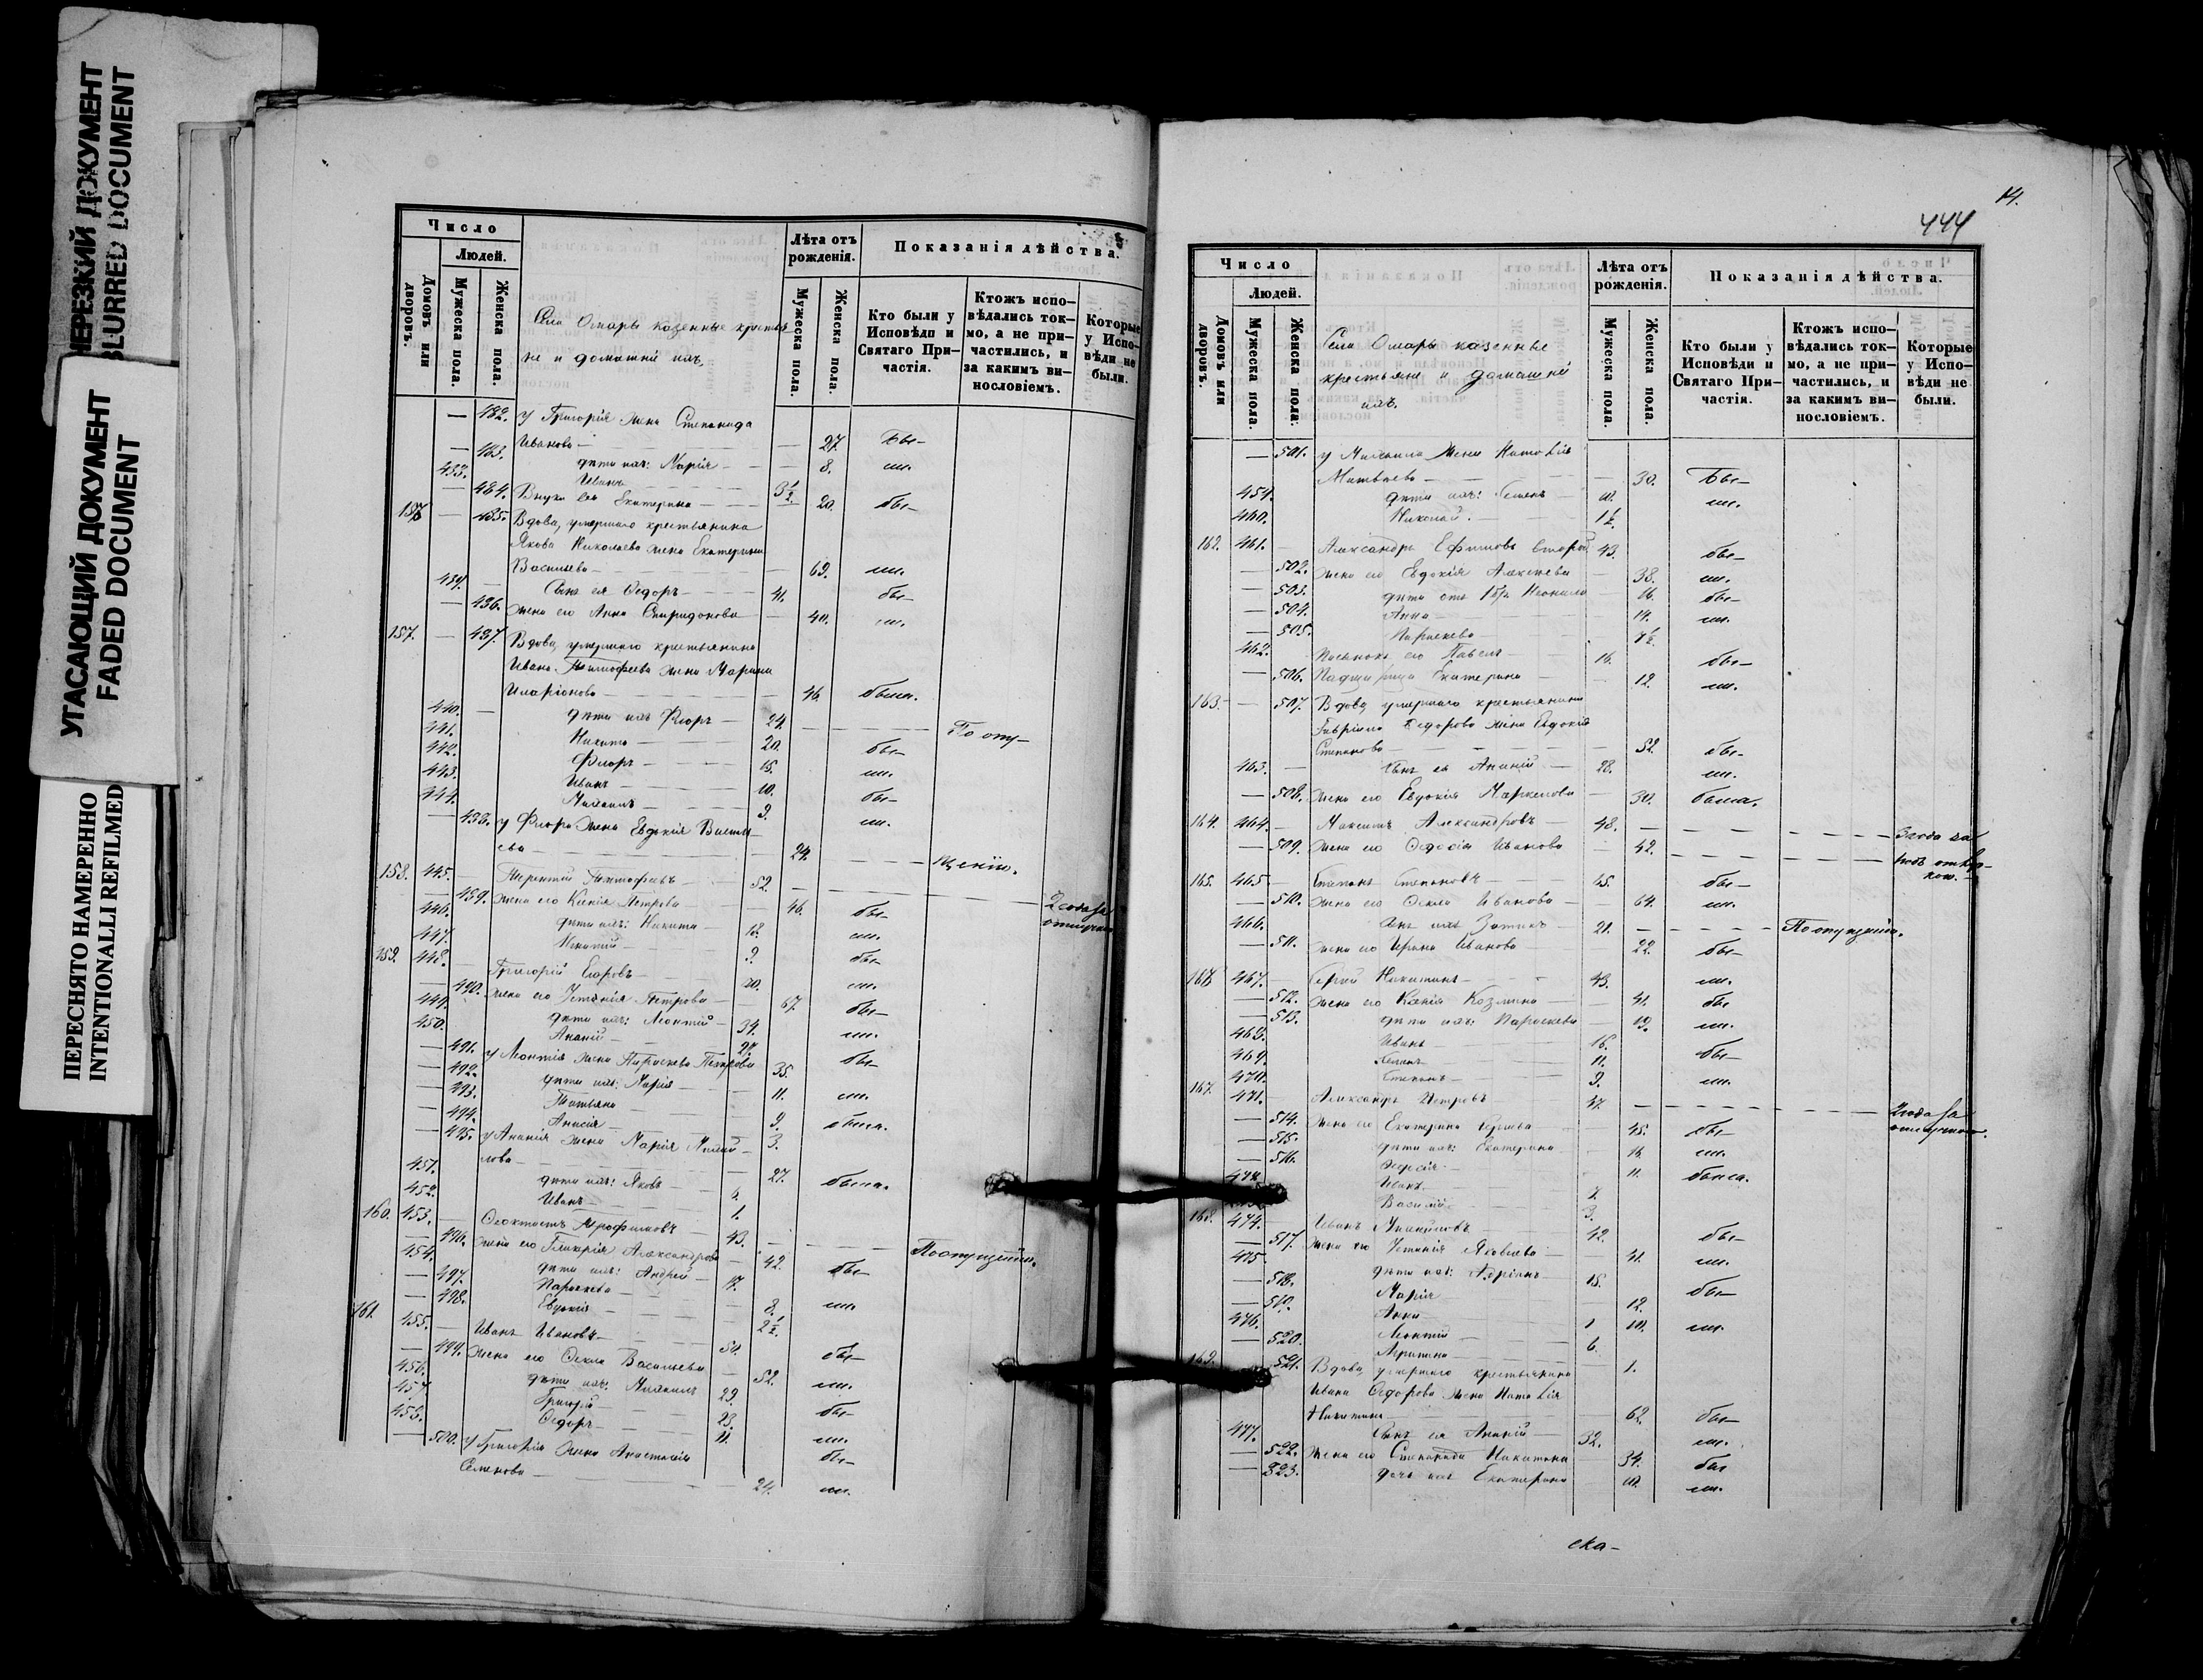 НЕРЕЗКИЙ ДОКУМЕНТ
BLURRED DOCUMENT
УГАСАЮЩИЙ ДОКУМЕНТ
FADED DOCUMENT
ПЕРЕСНЯТО НАМЕРЕННО
INTENTIONALLI REFILMED
Число
Людей.
Домовъ или дворовъ.
Мужеска пола.
Женска пола.
Села Омары казенные крестья-
не и домашніе ихъ
Лѣта отъ рожденія.
Мужеска пола.
Женска пола.
Показанія дѣйства.
Кто были у Исповѣди и Святаго При-частія.
Ктожъ испо-вѣдались ток-мо, а не при-частились, и за какимъ ви-нословіемъ.
Которые у Испо-вѣди не были.
У Григорія жена Степанида
Иванова — 27. бы-
дѣти ихъ: Марія — 8. ли.
433. Иванъ — 3½
484. Внука Екатерина — 20. бы-
485. Вдова, умершаго крестьянина
Якова Николаева жена Екатерина
Васильева — 69. ли.
439. Сынъ ея Ѳедоръ — 41. бы-
486. жена его Анна Спиридонова — 40. ли.
157. 487. Вдова, умершаго крестьянина
Ивана Тимофеева жена Марина
Иларіонова — 46. была.
440. дѣти ихъ Флоръ — 24. По опу-
441. Никита — 20. бы-
442. Флоръ — 15. ли.
443. Иванъ — 10. бы-
444. Михаилъ — 9. ли.
488. у Флора жена Евдокія
ева — 24. щенію.
158. 445. Терентій Тимофеевъ — 52. 2 года за
489. жена его Ксенія Петрова — 46. бы-
446. дѣти ихъ: Никита — 18. ли.
447. 9. бы-
159. 448. Григорій Егоровъ — 70. ли.
490. жена его Устинія Петрова — 67. бы-
449. дѣти ихъ: Леонтій — 34. ли.
450. Ананій — 27. бы-
491. у Леонтія жена Параскева Петрова 35. ли.
492. дѣти ихъ: Марія — 11. была.
493. Татьяна — 9.
494. Анисія — 3.
495. у Ананія жена Марія Михай-
лова — 27. была.
451. дѣти ихъ: Яковъ
452. Иванъ — 1.
160. 453. Ѳеоктистъ Трофимовъ — 43. По опущенію.
496. жена его Гликерія Александрова — 42. бы-
454. дѣти ихъ: Андрей — 17. ли.
497. Параскева — 8.
498. Евдокія — 2½
161. 455. Иванъ Ивановъ — 50. бы-
499. жена его Ѳекла Васильева — 52. ли.
456. дѣти ихъ: Михаилъ 29. бы-
457. Григорій — 23. ли.
458. Ѳедоръ — 11. бы-
500. у Григорія жена Анастасія
Семенова — 24. ли.
14.
444
Число
Людей.
Домовъ или дворовъ.
Мужеска пола.
Женска пола.
Села Омары казенные
крестьяне и домашніе
ихъ.
Лѣта отъ рожденія.
Мужеска пола.
Женска пола.
Показанія дѣйства.
Кто были у Исповѣди и Святаго При-частія.
Ктожъ испо-вѣдались ток-мо, а не при-частились, и за какимъ ви-нословіемъ.
Которые у Испо-вѣди не были.
501. у Михаила жена Наталія
Матвѣева — 30. Бы-
459. дѣти ихъ: Семенъ — 10. ли.
460. Николай. — 1½
162. 461. Александръ Ефимовъ вторый 43. бы-
502. жена его Евдокія Алексѣева — 38. ли.
503. дѣти отъ 1 бр. Неонила — 16. бы-
504. Анна — 14. ли.
505. Параскева — 7½
462. Пасынокъ его Павелъ — 16. бы-
506. Падчерица Екатерина — 12. ли.
163. 507. Вдова, умершаго крестьянина
Гавріила Ѳедорова жена Евдокія
Степанова — 52. бы-
463. Сынъ ея Ананій — 28. ли.
508. жена его Евдокія Маркелова — 30. была.
164. 464. Максимъ Александровъ — 48. 3 года за
509. жена его Ѳедосія Иванова — 42.
165. 465. Степанъ Степановъ — 65. бы-
510. жена его Ѳекла Иванова — 64. ли.
466. Сынъ ихъ — 21. По опущенію.
511. жена его Ирина Иванова — 22. бы-
166. 467. Сергій Никитинъ — 43. ли.
512. жена его Ксенія Козмина — 41. бы-
513. дѣти ихъ: Параскева — 19. ли.
468. Иванъ — 16. бы-
469. 11. ли.
470. Степанъ — 9.
167. 471. Александръ Петровъ — 47. 2 года за
514. жена его Екатерина Сергѣева — 45. бы-
515. дѣти ихъ: Екатерина — 16. ли.
516. 11. была.
472. Иванъ — 7.
Василій — 3.
168. 474. Иванъ Михайловъ — 42. бы-
517. жена его Устинія Яковлева — 41. ли.
475. дѣти ихъ: Адріанъ — 15. бы-
518. Марія — 12. ли.
519. Анна — 10.
476. Леонтій — 6.
520. 1.
169. 521. Вдова, умершаго крестьянина
Ивана Ѳедорова жена Наталія
Никитина — 62. бы-
477. Сынъ ея Ананій — 32. ли.
522. жена его Степанида Никитина — 34. бы-
523. дочь ихъ Екатерина — 10. ли.
ска-